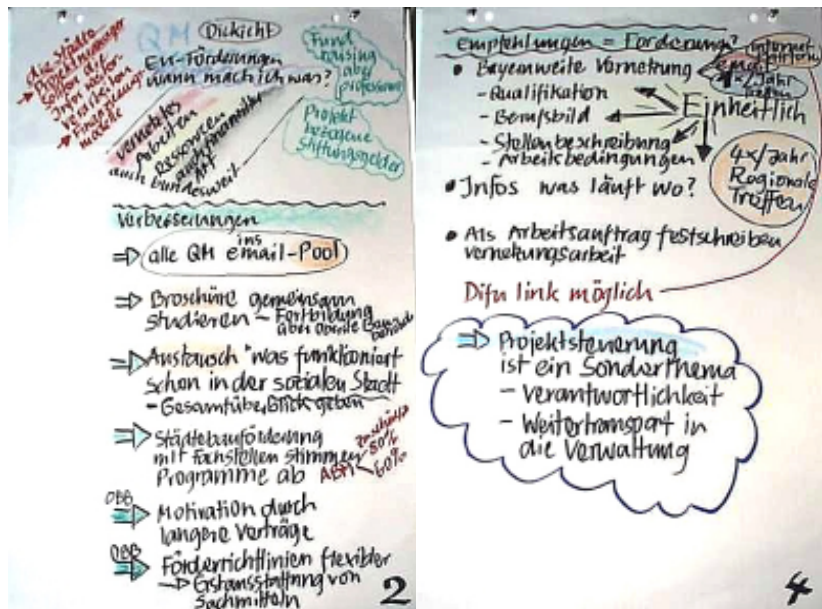 QM Dickicht
EU-Förderungen
wann mach ich was?
Fund
raising
aber
professionell
Projekt
bezogene
Stiftungsgelder
die Städte
Projektmanager
sollen
Infos
Finanzierungs-
modelle
vernetztes
Arbeiten
Ressourcen
auch finanzieller
Art
auch bundesweit
Verbesserungen
⇒ alle QM ins email-Pool
⇒ Broschüre gemeinsam
studieren – Fortbildung
über Oberste Baubehörde
⇒ Austausch "was funktioniert
schon in der sozialen Stadt
– Gesamtüberblick geben
⇒ Städtebauförderung
mit Fachstellen stimmen
Programme ab
ABM
80%
60%
OBB
⇒ Motivation durch
längere Verträge
OBB
⇒ Förderrichtlinien flexibler
→ Erstausstattung von
Sachmitteln
2
Empfehlungen = Forderung?
• Bayernweite Vernetzung
email
Internet
plattform
1x/Jahr
Treffen
– Qualifikation
– Berufsbild
Einheitlich
– Stellenbeschreibung
– Arbeitsbedingungen
4x/Jahr
Regionale
Treffen
• Infos was läuft wo?
• Als Arbeitsauftrag festschreiben
Vernetzungsarbeit
Difu link möglich
⇒ Projektsteuerung
ist ein Sonderthema
– Verantwortlichkeit
– Weitertransport in
die Verwaltung
4